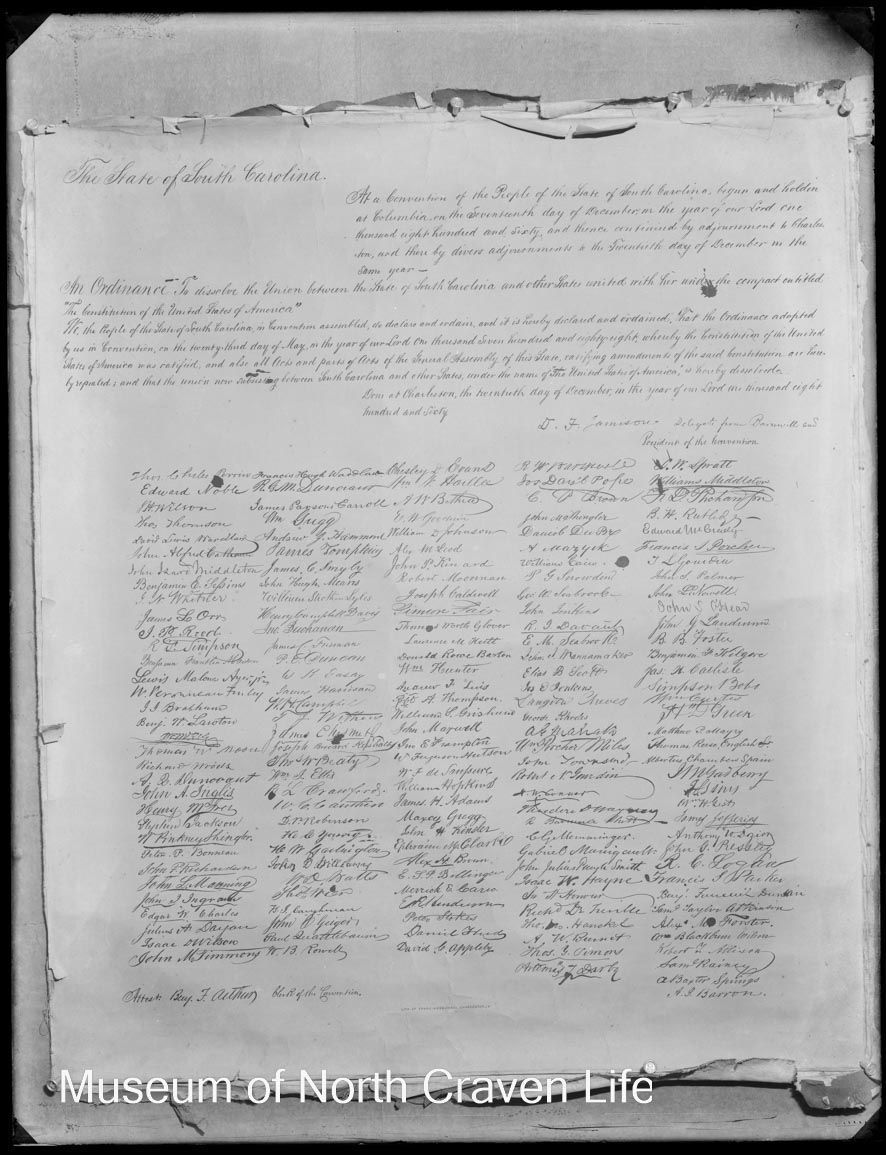 The State of South Carolina.
At a Convention of the People of the State of South Carolina, begun and holden
at Columbia, on the Seventeenth day of December, in the year of our Lord one
thousand eight hundred and sixty, and thence continued by adjournment to Charles
ton, and there by divers adjournments to the Twentieth day of December in the
same year —
An Ordinance To dissolve the Union between the State of South Carolina and other States united with her under the compact entitled
"The Constitution of the United States of America"
We, the People of the State of South Carolina, in Convention assembled, do declare and ordain, and it is hereby declared and ordained, That the Ordinance adopted
by us in Convention, on the twenty-third day of May, in the year of our Lord One thousand Seven hundred and eighty eight, whereby the Constitution of the United
States of America was ratified, and also all Acts and parts of Acts of the General Assembly of this State, ratifying amendments of the said Constitution are here
by repealed; and that the union now subsisting between South Carolina and other States, under the name of "The United States of America," is hereby dissolved.
Done at Charleston, the twentieth day of December, in the year of our Lord one thousand eight
hundred and sixty
D. F. Jamison Delegate from Barnwell and
President of the Convention
Thos Chiles Perrin
Edward Noble
J. H. Wilson
Thos Thomson
David Lewis Wardlaw
John Alfred Calhoun
John Izard Middleton
Benjamin E. Sessions
J. N. Whitner
James L. Orr
J. P. Reed
R. F. Simpson
Benjamin Franklin
Lewis Malone Ayer, Jr.
W. Peronneau Finley
J. J. Brabham
Benj. W. Lawton
Thomas W. Moore
Richard Woods
A. Q. Dunovant
John A. Inglis
Henry McIver
Stephen Jackson
W. Pinkney Shingler
Peter P. Bonneau
John P. Richardson
John L. Manning
John J. Ingram
Edgar W. Charles
Julius A. Dargan
Isaac D Wilson
John M. Timmons
Francis Hugh Wardlaw
R. G. M. Dunovant
James Parsons Carroll
Wm Gregg
Andrew J. Hammond
James Tompkins
James C. Smyly
John Hugh Means
William Strother Lyles
Henry Campbell Davis
Jno. Buchanan
James C. Furman
P. E. Duncan
W. K. Easley
James Harrison
W. H. Campbell
T. J. Withers
James Chesnut Jr
Joseph Brevard Kershaw
Thos W Beaty
Wm J. Ellis
R. L. Crawford
W. C. Cauthen
D. P. Robinson
H. C. Young
H. W. Garlington
John D. Williams
W. D. Watts
Thos Wier
H. I. Caughman
John C. Geiger
Paul Quattlebaum
W. B. Rowell
Chesley D. Evans
Wm W. Harllee
A. W. Bethea
E. W. Goodwin
William D. Johnson
Alex McLeod
John P. Kinard
Robert Moorman
Joseph Caldwell
Simeon Fair
Thomas Worth Glover
Lawrence M. Keitt
Donald Rowe Barton
Wm Hunter
Andrew F. Lewis
Robt A. Thompson
William S. Grisham
John Maxwell
Jno E Frampton
W Ferguson Hutson
W. F. de Saussure
William Hopkins
James H. Adams
Maxcy Gregg
John H Kinsler
Ephraim M. Clark
Alex H. Brown
E. S. P. Bellinger
Merrick E. Carn
E. R. Henderson
Peter Stokes
Daniel Flud
David C. Appleby
R. W. Barnwell
Jos Dan'l Pope
C. P. Brown
John M Shingler
Daniel Du Pre
A Mazyck
William Cain
P. G. Snowden
Geo. W. Seabrook
John Jenkins
R. J. Davant
E. M. Seabrook
John J. Wannamaker
Elias B. Scott
Jos E Jenkins
Langdon Cheves
George Rhodes
A. G. Magrath
Wm Porcher Miles
John Townsend
Robt N. Gourdin
H. W. Conner
Theodore D Wagner
R. Barnwell Rhett
C. G. Memminger
Gabriel Manigault
John Julius Pringle Smith
Isaac W. Hayne
Jn H Honour
Richd De Treville
Thos. M. Hanckel
A. W. Burnet
Thos. Y. Simons
Artemas T. Darby
L. W. Spratt
Williams Middleton
F. D. Richardson
B. H. Rutledge
Edward McCrady
Francis J. Porcher
T. L. Gourdin
John S. Palmer
John L. Nowell
John S. O'Hear
John G. Landrum
B. B. Foster
Benjamin F. Kilgore
Jas. H. Carlisle
Simpson Bobo
Wm Curtis
H. D. Green
Matthew P. Mayes
Thomas Reese English Sr
Albertus Chambers Spain
J. M. Gadberry
J. S. Sims
Wm H. Gist
James Jefferies
Anthony W. Dozier
John G. Pressley
R. C. Logan
Francis S. Parker
Benj. Faneuil Dunkin
Saml Taylor Atkinson
Alex. M. Forster
Wm Blackburn Wilson
Robert T. Allison
Samuel Rainey
A Baxter Springs
A. I. Barron.
Attest: Benj. F. Arthur Clerk of the Convention.
Museum of North Craven Life